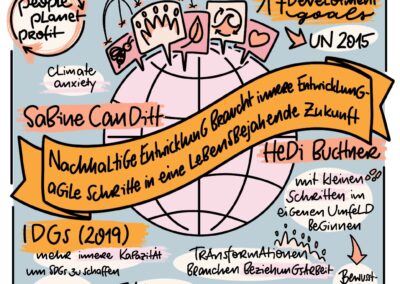 people
planet
profit
17 Development
goals
UN 2015
climate
anxiety
Sabine Canditt
Nachhaltige Entwicklung braucht innere Entwicklung-
agile Schritte in eine lebensbejahende Zukunft
Hedi Buchner
mit kleinen
Schritten im
eigenen Umfeld
beginnen
IDGs (2019)
mehr innere Kapazität
um SDGs zu schaffen
Transformationen
brauchen Beziehungsarbeit
Bewusst-